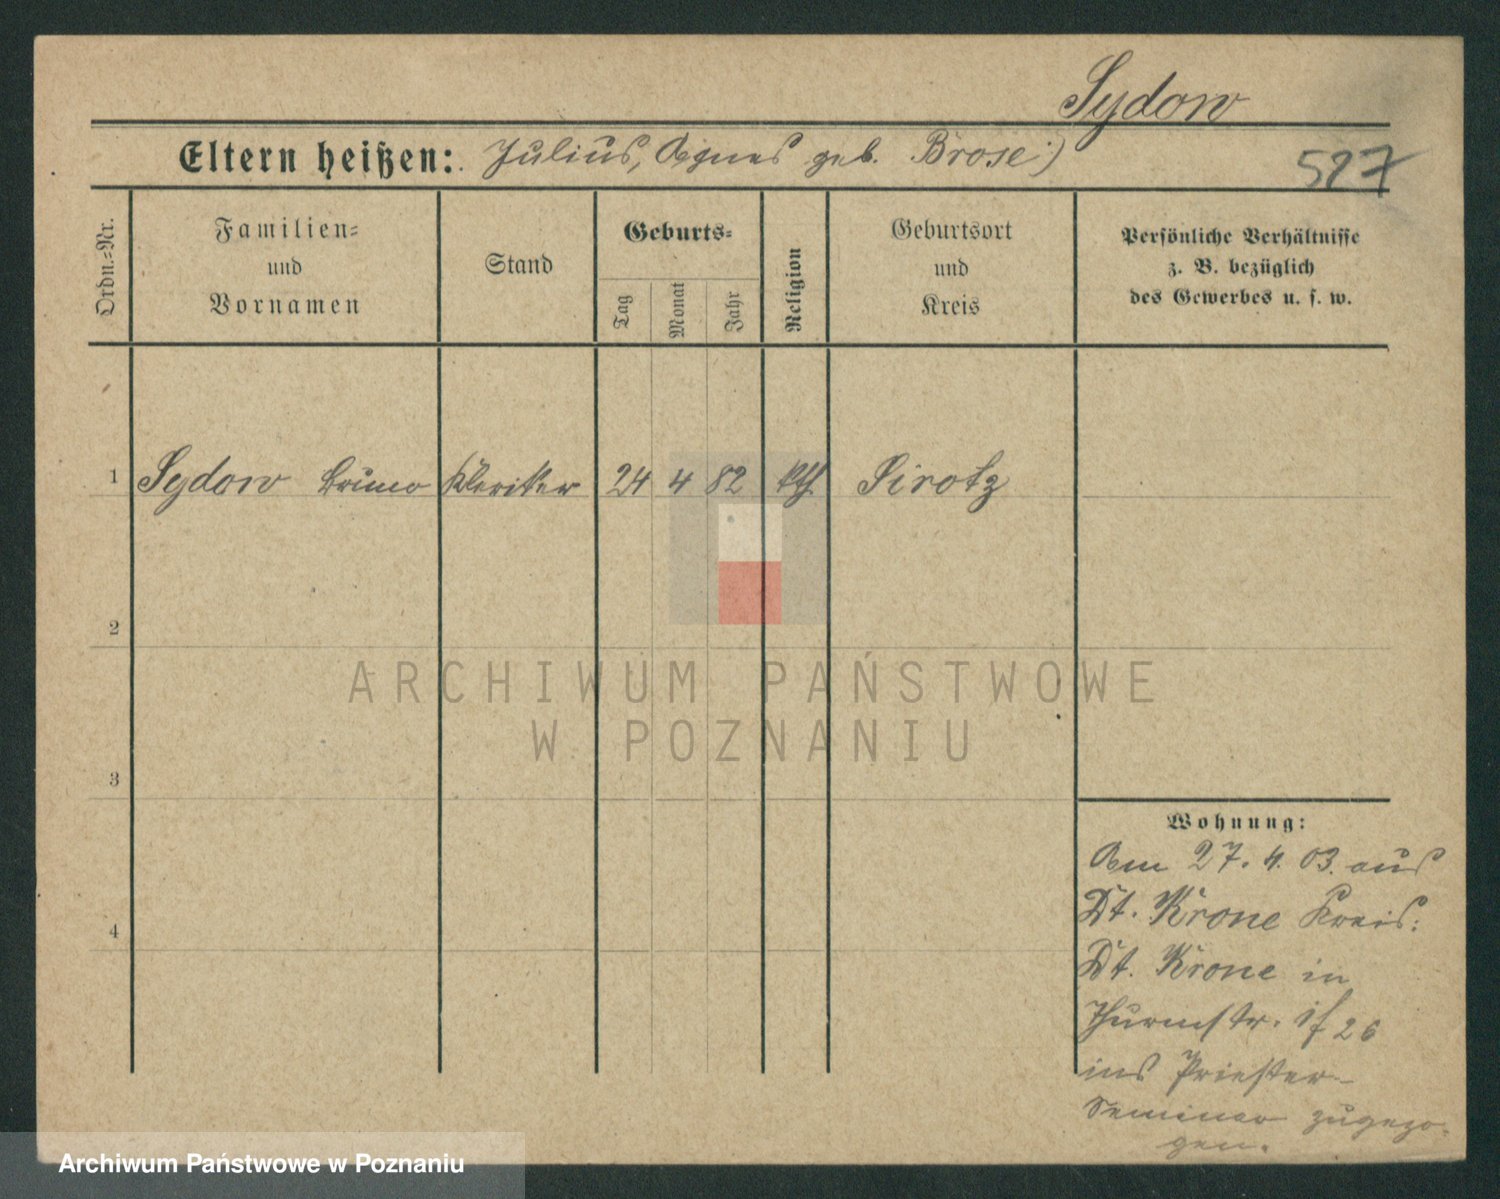 Sydow
Eltern heißen: Julius, Agnes geb. Brose
Ordn.-Nr.
Familien-
und
Vornamen
Stand
Geburts-
Tag
Monat
Jahr
Religion
Geburtsort
und
Kreis
Persönliche Verhältnisse
z. B. bezüglich
des Gewerbes u. s. w.
1 Sydow Bruno Kleriker 24 4 82 kth. Sirotz
2
3
4
Wohnung:
Am 27. 4. 03. aus
Dt. Krone Kreis:
Dt. Krone in
Thurmstr.
ins Priester-
Seminar zugezo-
gen.
ARCHIWUM PAŃSTWOWE
W POZNANIU
Archiwum Państwowe w Poznaniu